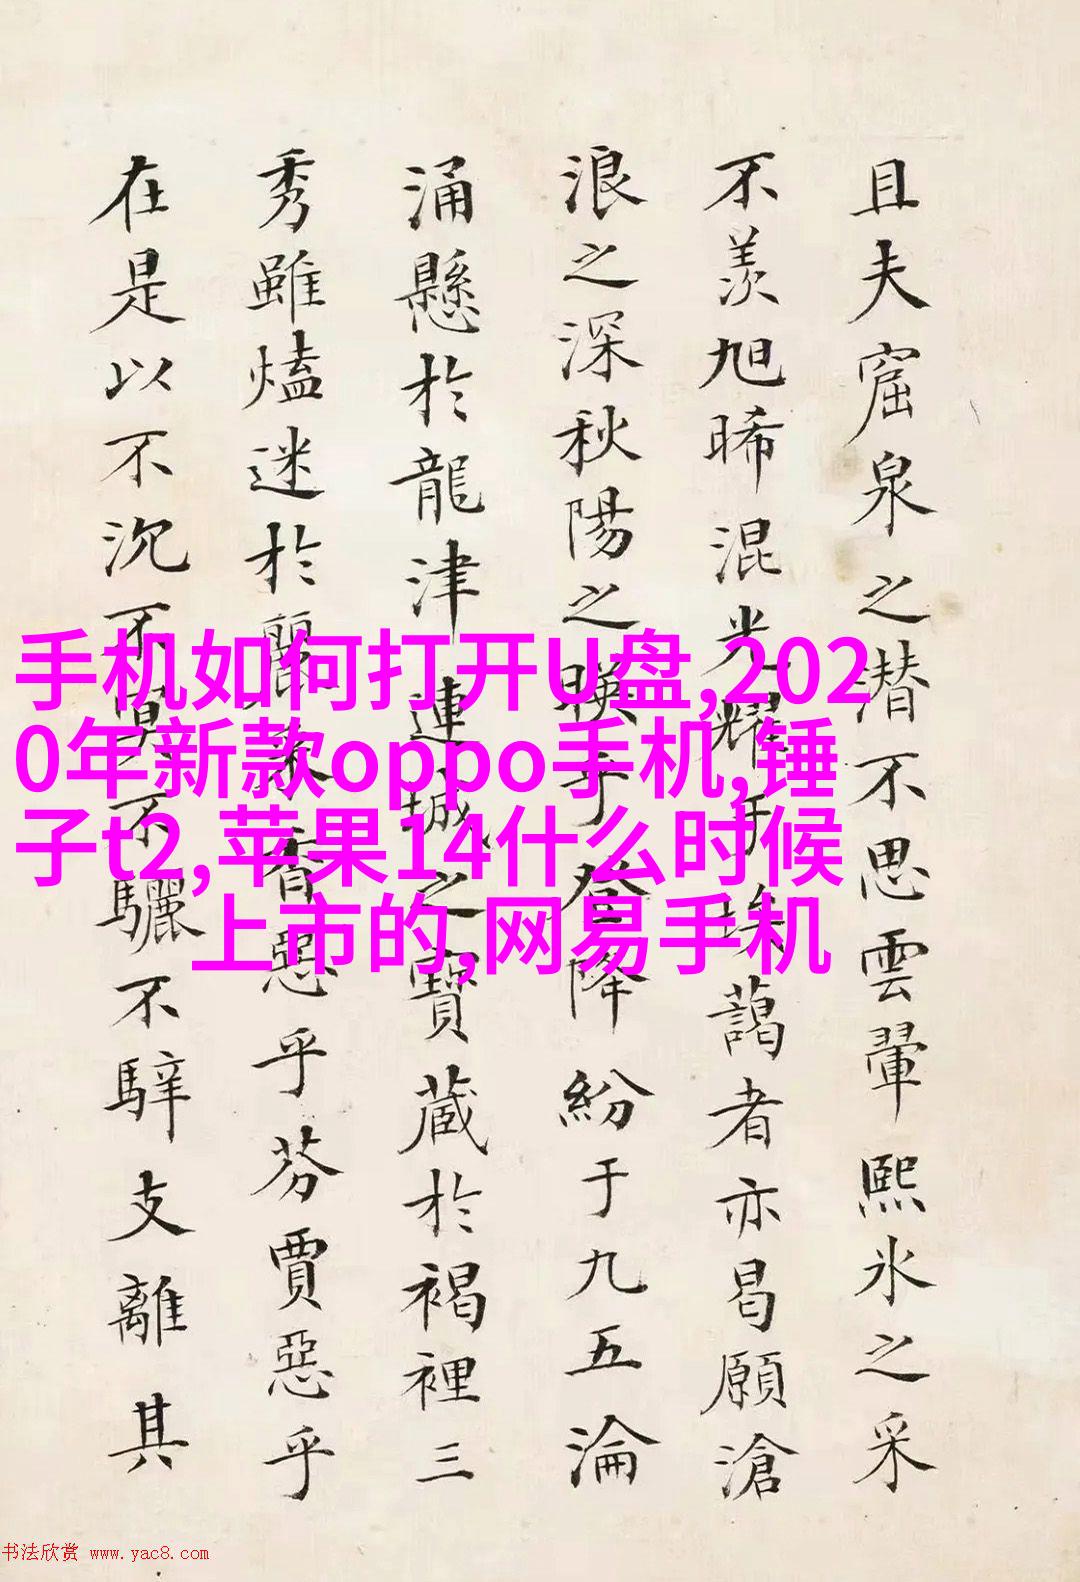 且夫窟泉之潜不思雲翬熙氷之采
不羡旭晞混光耀于埃藹者亦曷願滄
浪之深秋陽之暎乎登降紛于九五淪
涌懸於龍津連城之寶藏於褐裡三
秀雖熆迷於麗豕香惡乎芬賈惡乎
在是以不沉不莫不驪不騂支離其
手机如何打开U盘,202
0年新款oppo手机,锤
子t2,苹果14什么时候
上市的,网易手机
书法欣赏 www.yac8.com